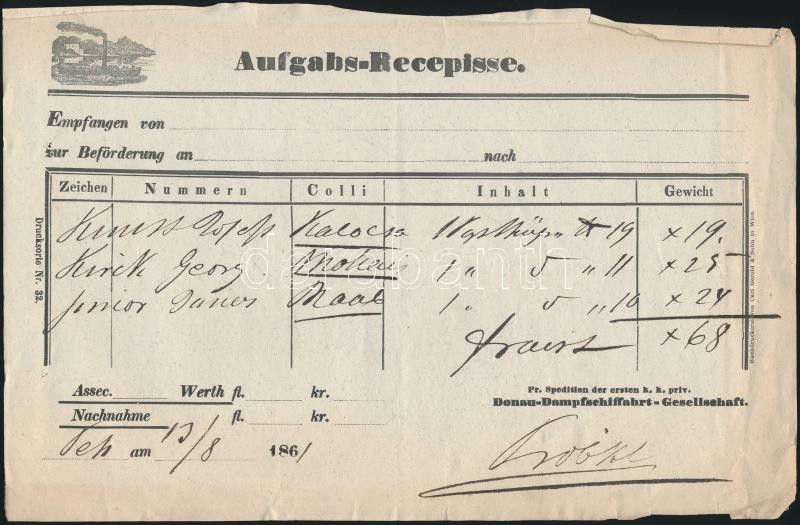 Aufgabs-Recepisse.
Empfangen von
zur Beförderung an nach
Zeichen Nummern Colli Inhalt Gewicht
Kalocsa 19 x 19.
Kirck Georg Mohacs 1 " 5 " 11 x 25
Junior Raab 1 " 5 " 10 x 24
franco x 68
Assec. Werth fl. kr.
Nachnahme fl. kr.
Pr. Spedition der ersten k. k. priv.
Donau-Dampfschiffahrt-Gesellschaft.
Pest am 13/8 1861
Drucksorte Nr. 32.
Buchdruckerei von Carl Gerold & Sohn in Wien.
darabanth